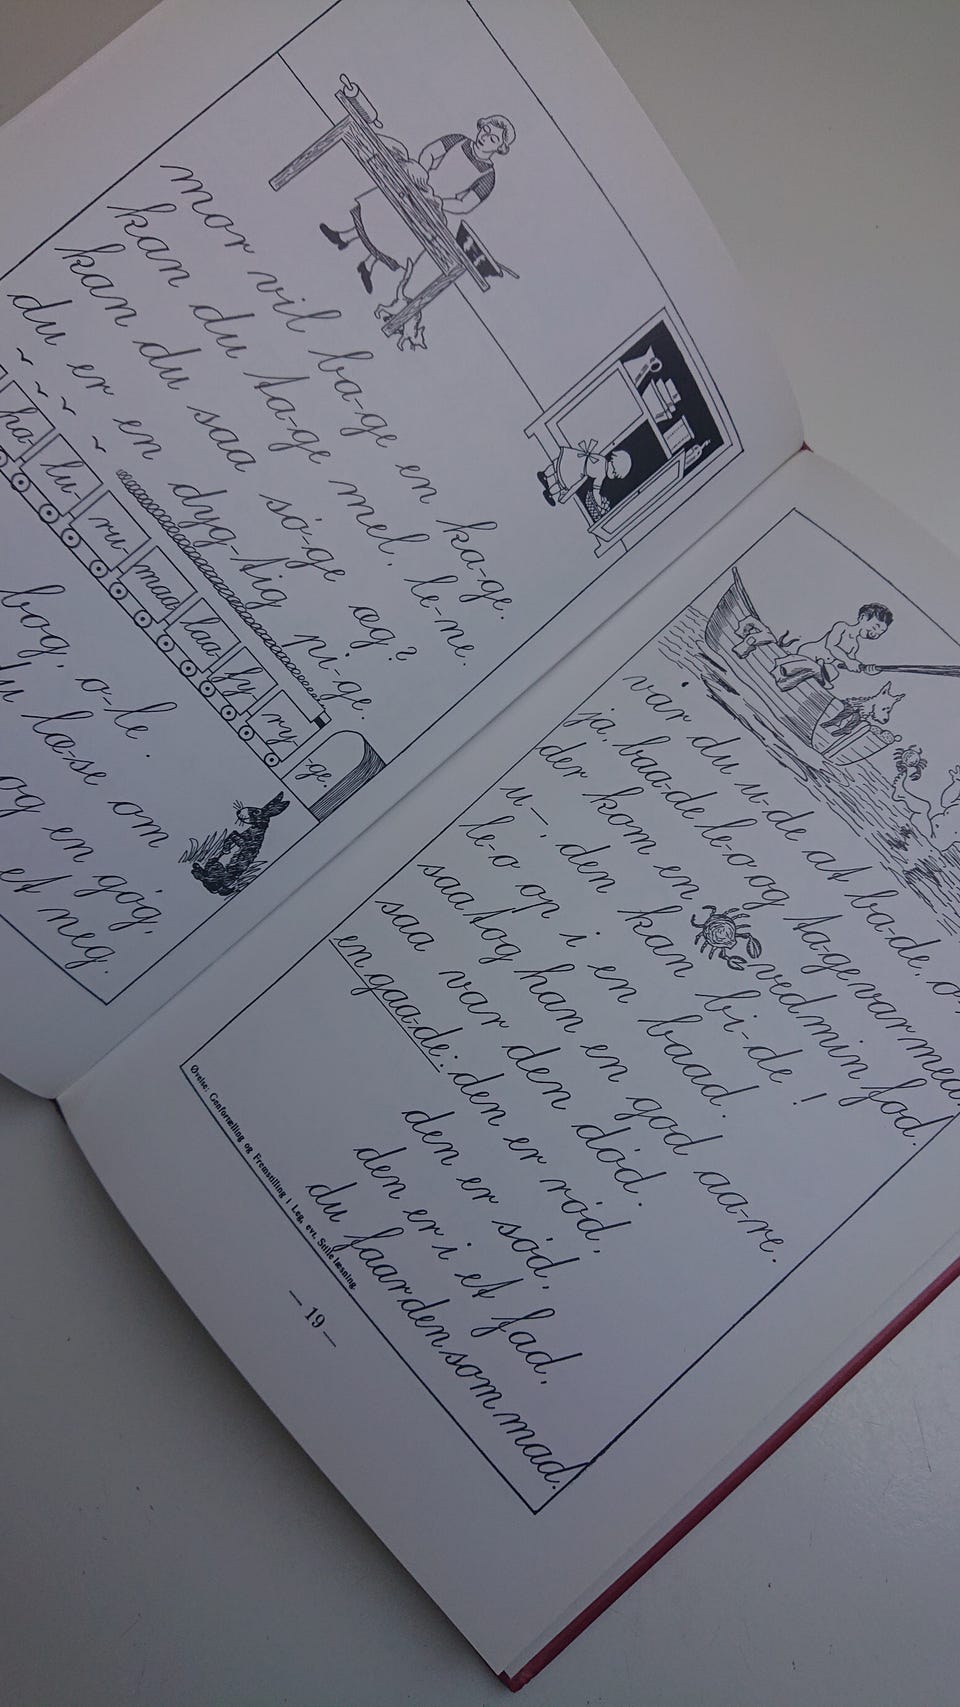 mor vil ba-ge en ka-ge.
kan du ta-ge mel, le-ne.
kan du saa sø-ge æg?
du er en dyg-tig pi-ge.
ha- lu- ru- maa laa fy ry -ge.
bog, o-le.
du læ-se om
og en gøg,
et neg.
var du u-de at ba-de,
ja, baa-de le-o og ta-ge var med.
der kom en ved min fod.
u-, den kan bi-de!
le-o op i en baad.
saa tog han en god aa-re.
saa var den død.
en gaa-de: den er rød,
den er sød,
den er i et fad,
du faar den som mad.
Øvelse: Genfortælling og Fremstilling i Leg, evt. Stillelæsning.
— 19 —